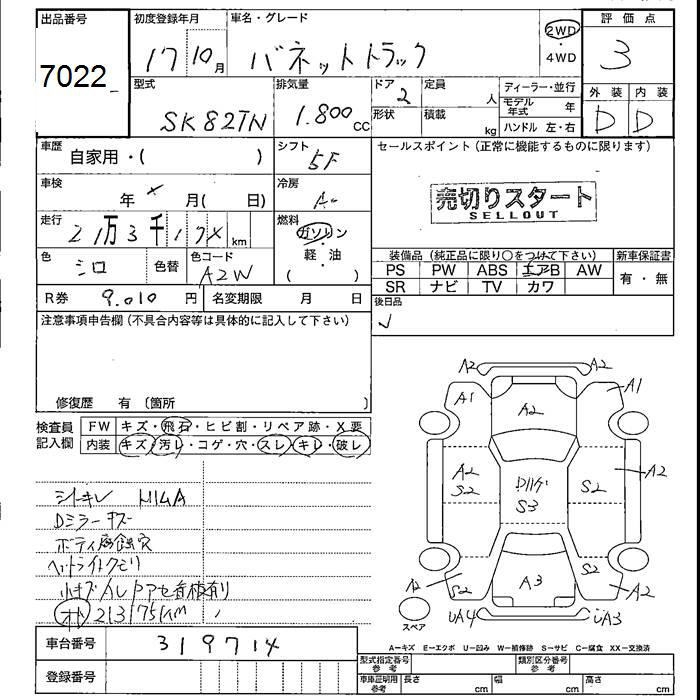 出品番号 初度登録年月 車名・グレード 評価点
7022 17 10月 バネットトラック 2WD・4WD 3
型式 排気量 ドア 定員 ディーラー・並行 外装 内装
SK82TN 1.800cc 2 人 モデル年式 年 D D
形状 積載 kg ハンドル 左・右
車歴 自家用・( ) シフト 5F セールスポイント(正常に機能するものに限ります)
車検 年 月( 日) 冷房 売切りスタート
SELLOUT
走行 21万3千17 km 燃料 ガソリン・軽油( )
色 シロ 色替 色コード A2W 装備品(純正品に限り○をつけて下さい) 新車保証書
PS PW ABS エアB AW 有・無
SR ナビ TV カワ
R券 9.010円 名変期限 月 日 後日品
注意事項申告欄(不具合内容等は具体的に記入して下さい)
修復歴 有 〔箇所
検査員記入欄 FW キズ・飛石・ヒビ割・リペア跡・X要
内装 キズ・汚レ・コゲ・穴・スレ・キレ・破レ
シートキレ
Dミラーキズ
ボディ腐蝕穴
ヘッドライトクモリ
213175KM
車台番号 319714
登録番号
A2 A2
A1 A2 A1
A2 S2 S3 S2 A2
A2 S2 A3 S2 A2
スペア UA4 UA3
A-キズ E-エクボ U-凹み W-補修跡 S-サビ C-腐食 XX-交換済
型式指定番号 参考 類別区分番号 参考
車庫証明用 参考 長さ cm 幅 cm 高さ cm